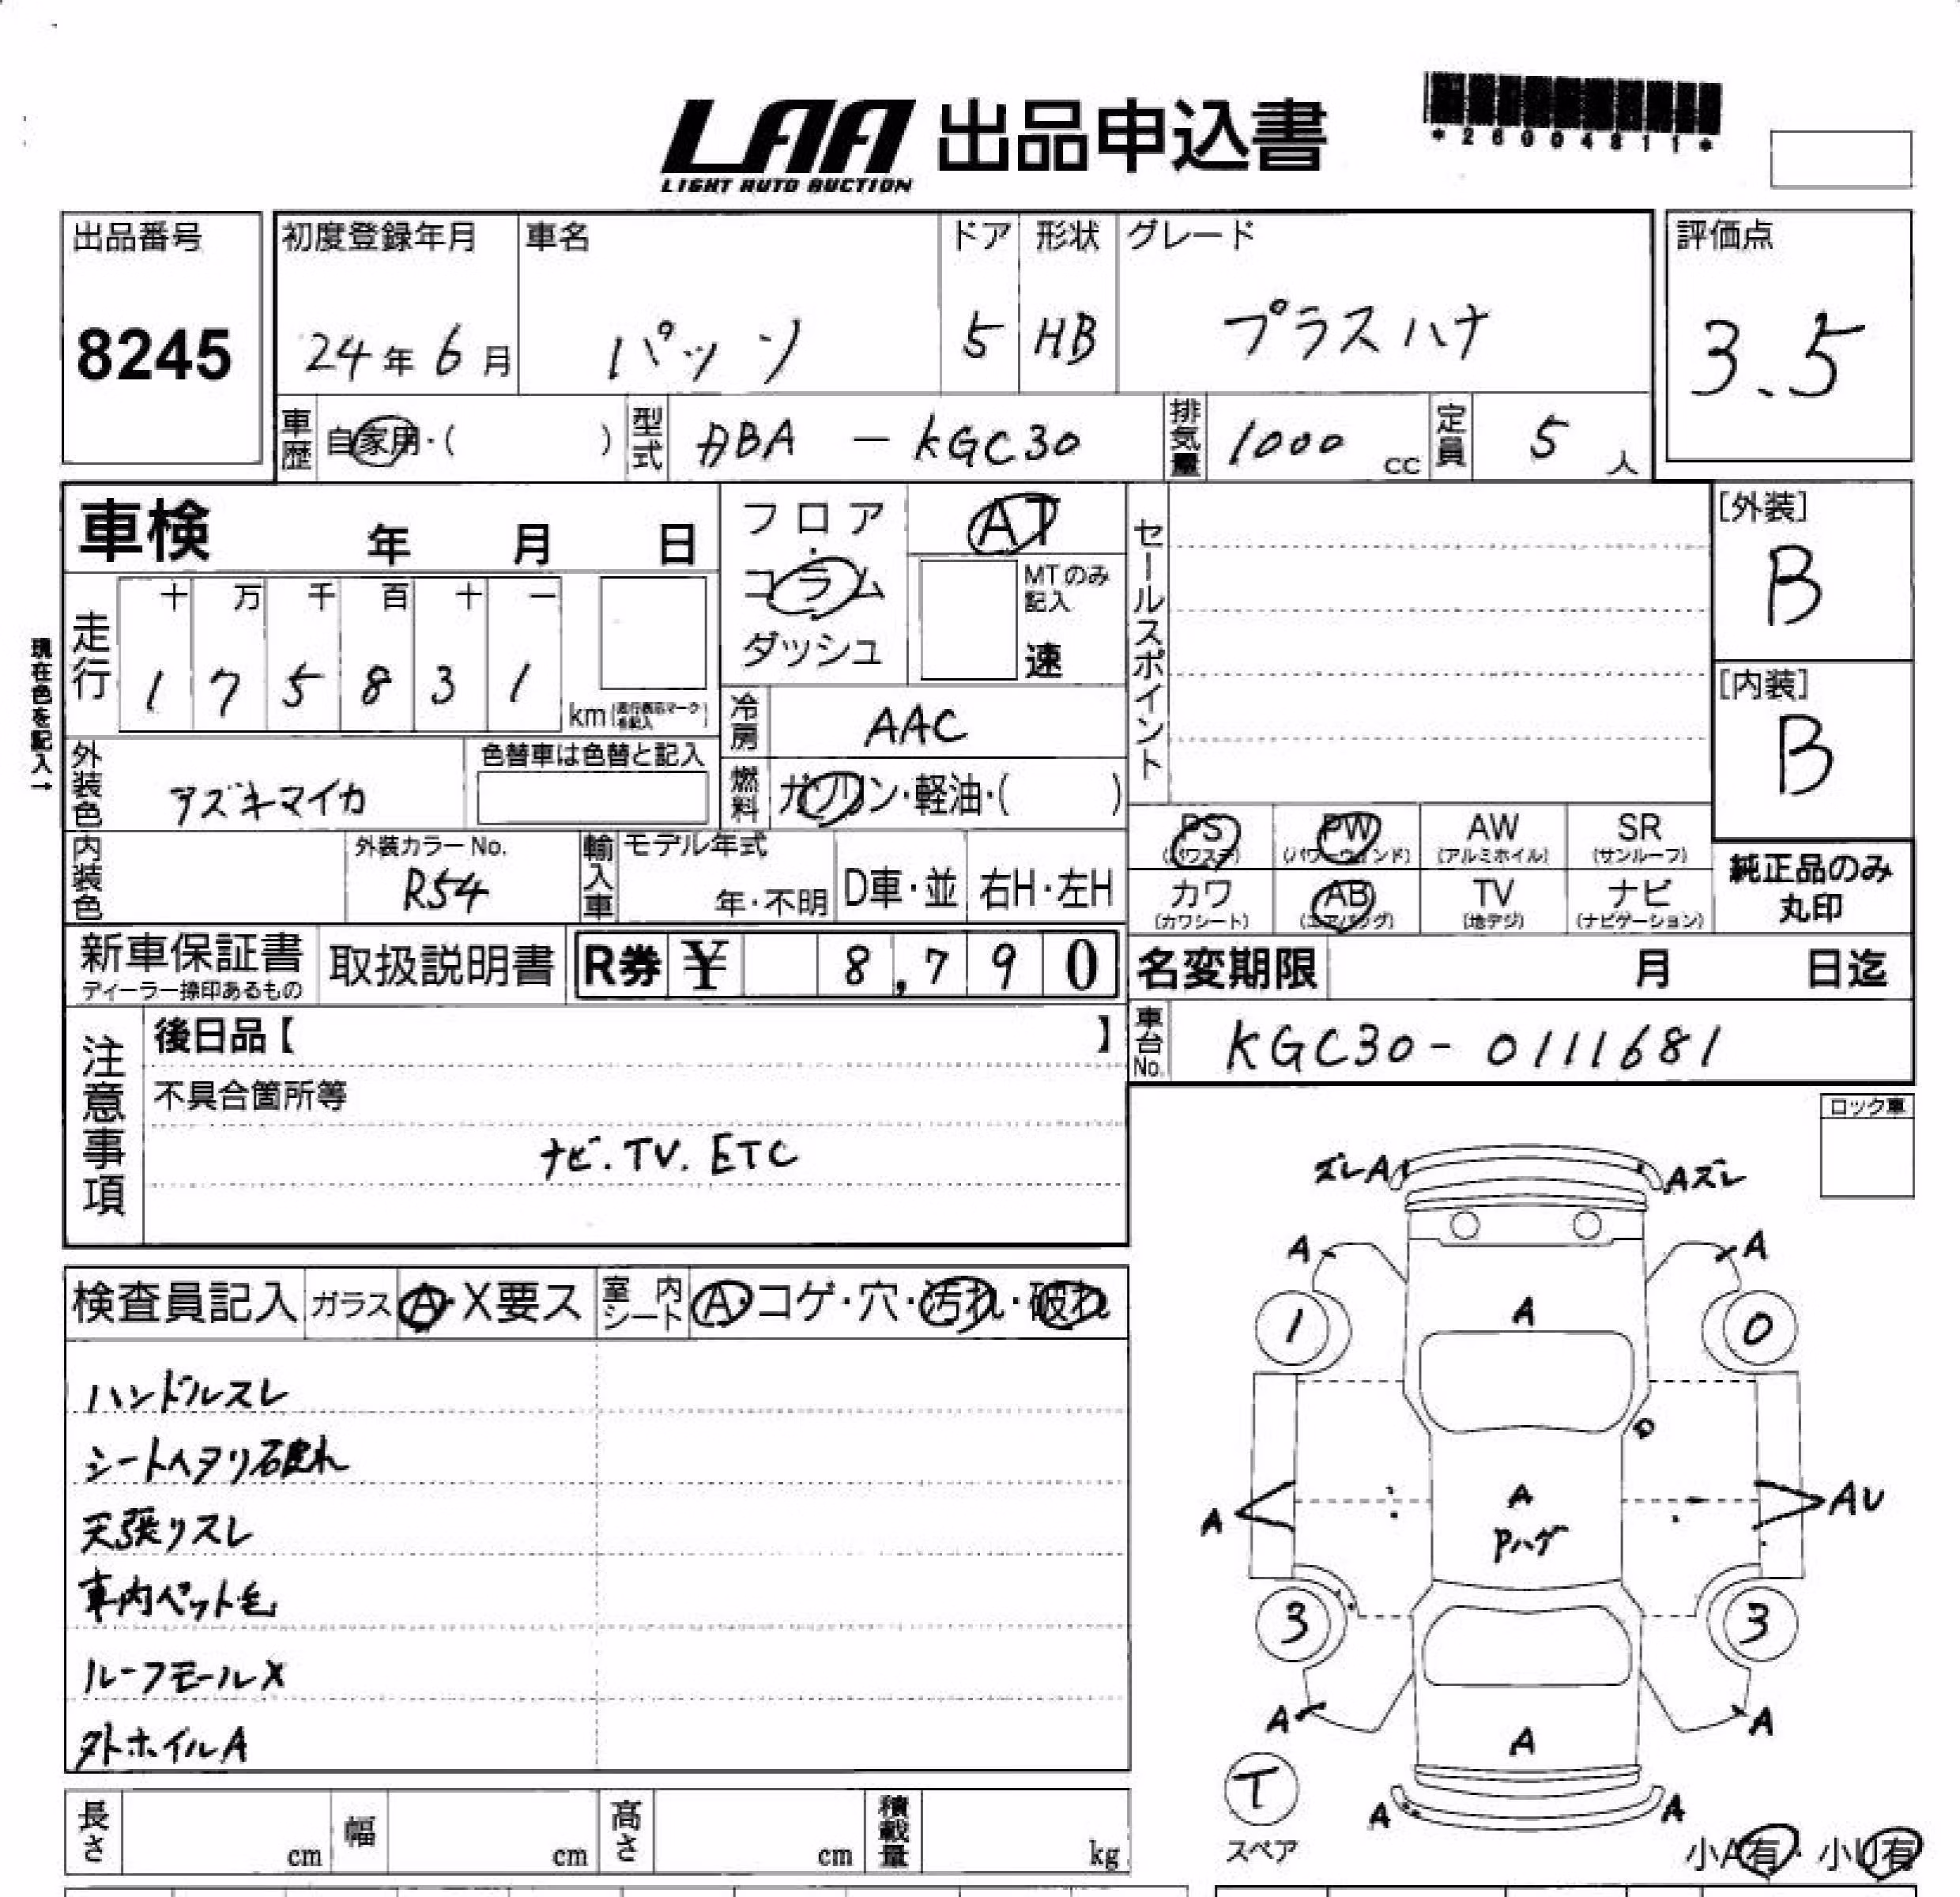 LAA 出品申込書
LIGHT AUTO AUCTION
*26004811*
出品番号
8245
初度登録年月
24年6月
車名
パッソ
ドア
5
形状
HB
グレード
プラスハナ
評価点
3.5
車歴
自家用・( )
型式
DBA - KGC30
排気量
1000 cc
定員
5 人
車検 年 月 日
フロア
・
コラム
・
ダッシュ
AT
MTのみ記入
速
セールスポイント
[外装]
B
[内装]
B
現在色を記入→
走行
十 万 千 百 十 一
1 7 5 8 3 1
km (走行表示マークを記入)
冷房
AAC
外装色
アズキマイカ
色替車は色替と記入
燃料
ガソリン・軽油・( )
内装色
外装カラーNo.
R54
輸入車
モデル年式
年・不明
D車・並
右H・左H
PS
(パワステ)
PW
(パワーウィンド)
AW
(アルミホイル)
SR
(サンルーフ)
カワ
(カワシート)
AB
(エアバッグ)
TV
(地デジ)
ナビ
(ナビゲーション)
純正品のみ
丸印
新車保証書
ディーラー捺印あるもの
取扱説明書
R券 ¥ 8,790
名変期限 月 日迄
注意事項
後日品【 】
車台No.
KGC30-0111681
不具合箇所等
ナビ.TV.ETC
ロック車
検査員記入
ガラス
A・X要ス
室内シート
A・コゲ・穴・汚れ・破れ
ハンドルスレ
シートヘタリ破れ
天張リスレ
車内ペット毛
ルーフモールX
外ホイルA
ズレA
Aズレ
A
A
A
1
0
A
AU
A
Pハゲ
3
3
A
A
A
T
スペア
A
A
小A有・小U有
長さ
cm
幅
cm
高さ
cm
積載量
kg